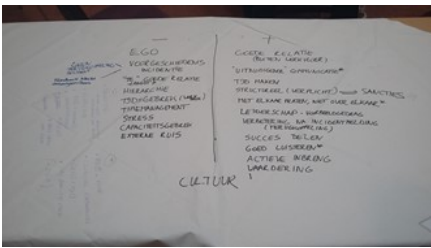 -
EGO
VOORGESCHIEDENIS
INCIDENTIE
"TE" GOEDE RELATIE
HIERARCHIE
TIJDGEBREK
TIMEMANAGEMENT
STRESS
CAPACITEITSGEBREK
EXTERNE RUIS
+
GOEDE RELATIE
(BUITEN WERKVLOER)
"UITNODIGENDE" COMMUNICATIE*
TIJD MAKEN
STRUCTUREEL (VERPLICHT) → SANCTIES
MET ELKAAR PRATEN, NIET OVER ELKAAR*
LEIDERSCHAP - VOORBEELDGEDRAG
VERBETERING NA INCIDENTMELDING
(TERUGKOPPELING)
SUCCES DELEN
GOED LUISTEREN*
ACTIEVE INBRENG
WAARDERING
CULTUUR